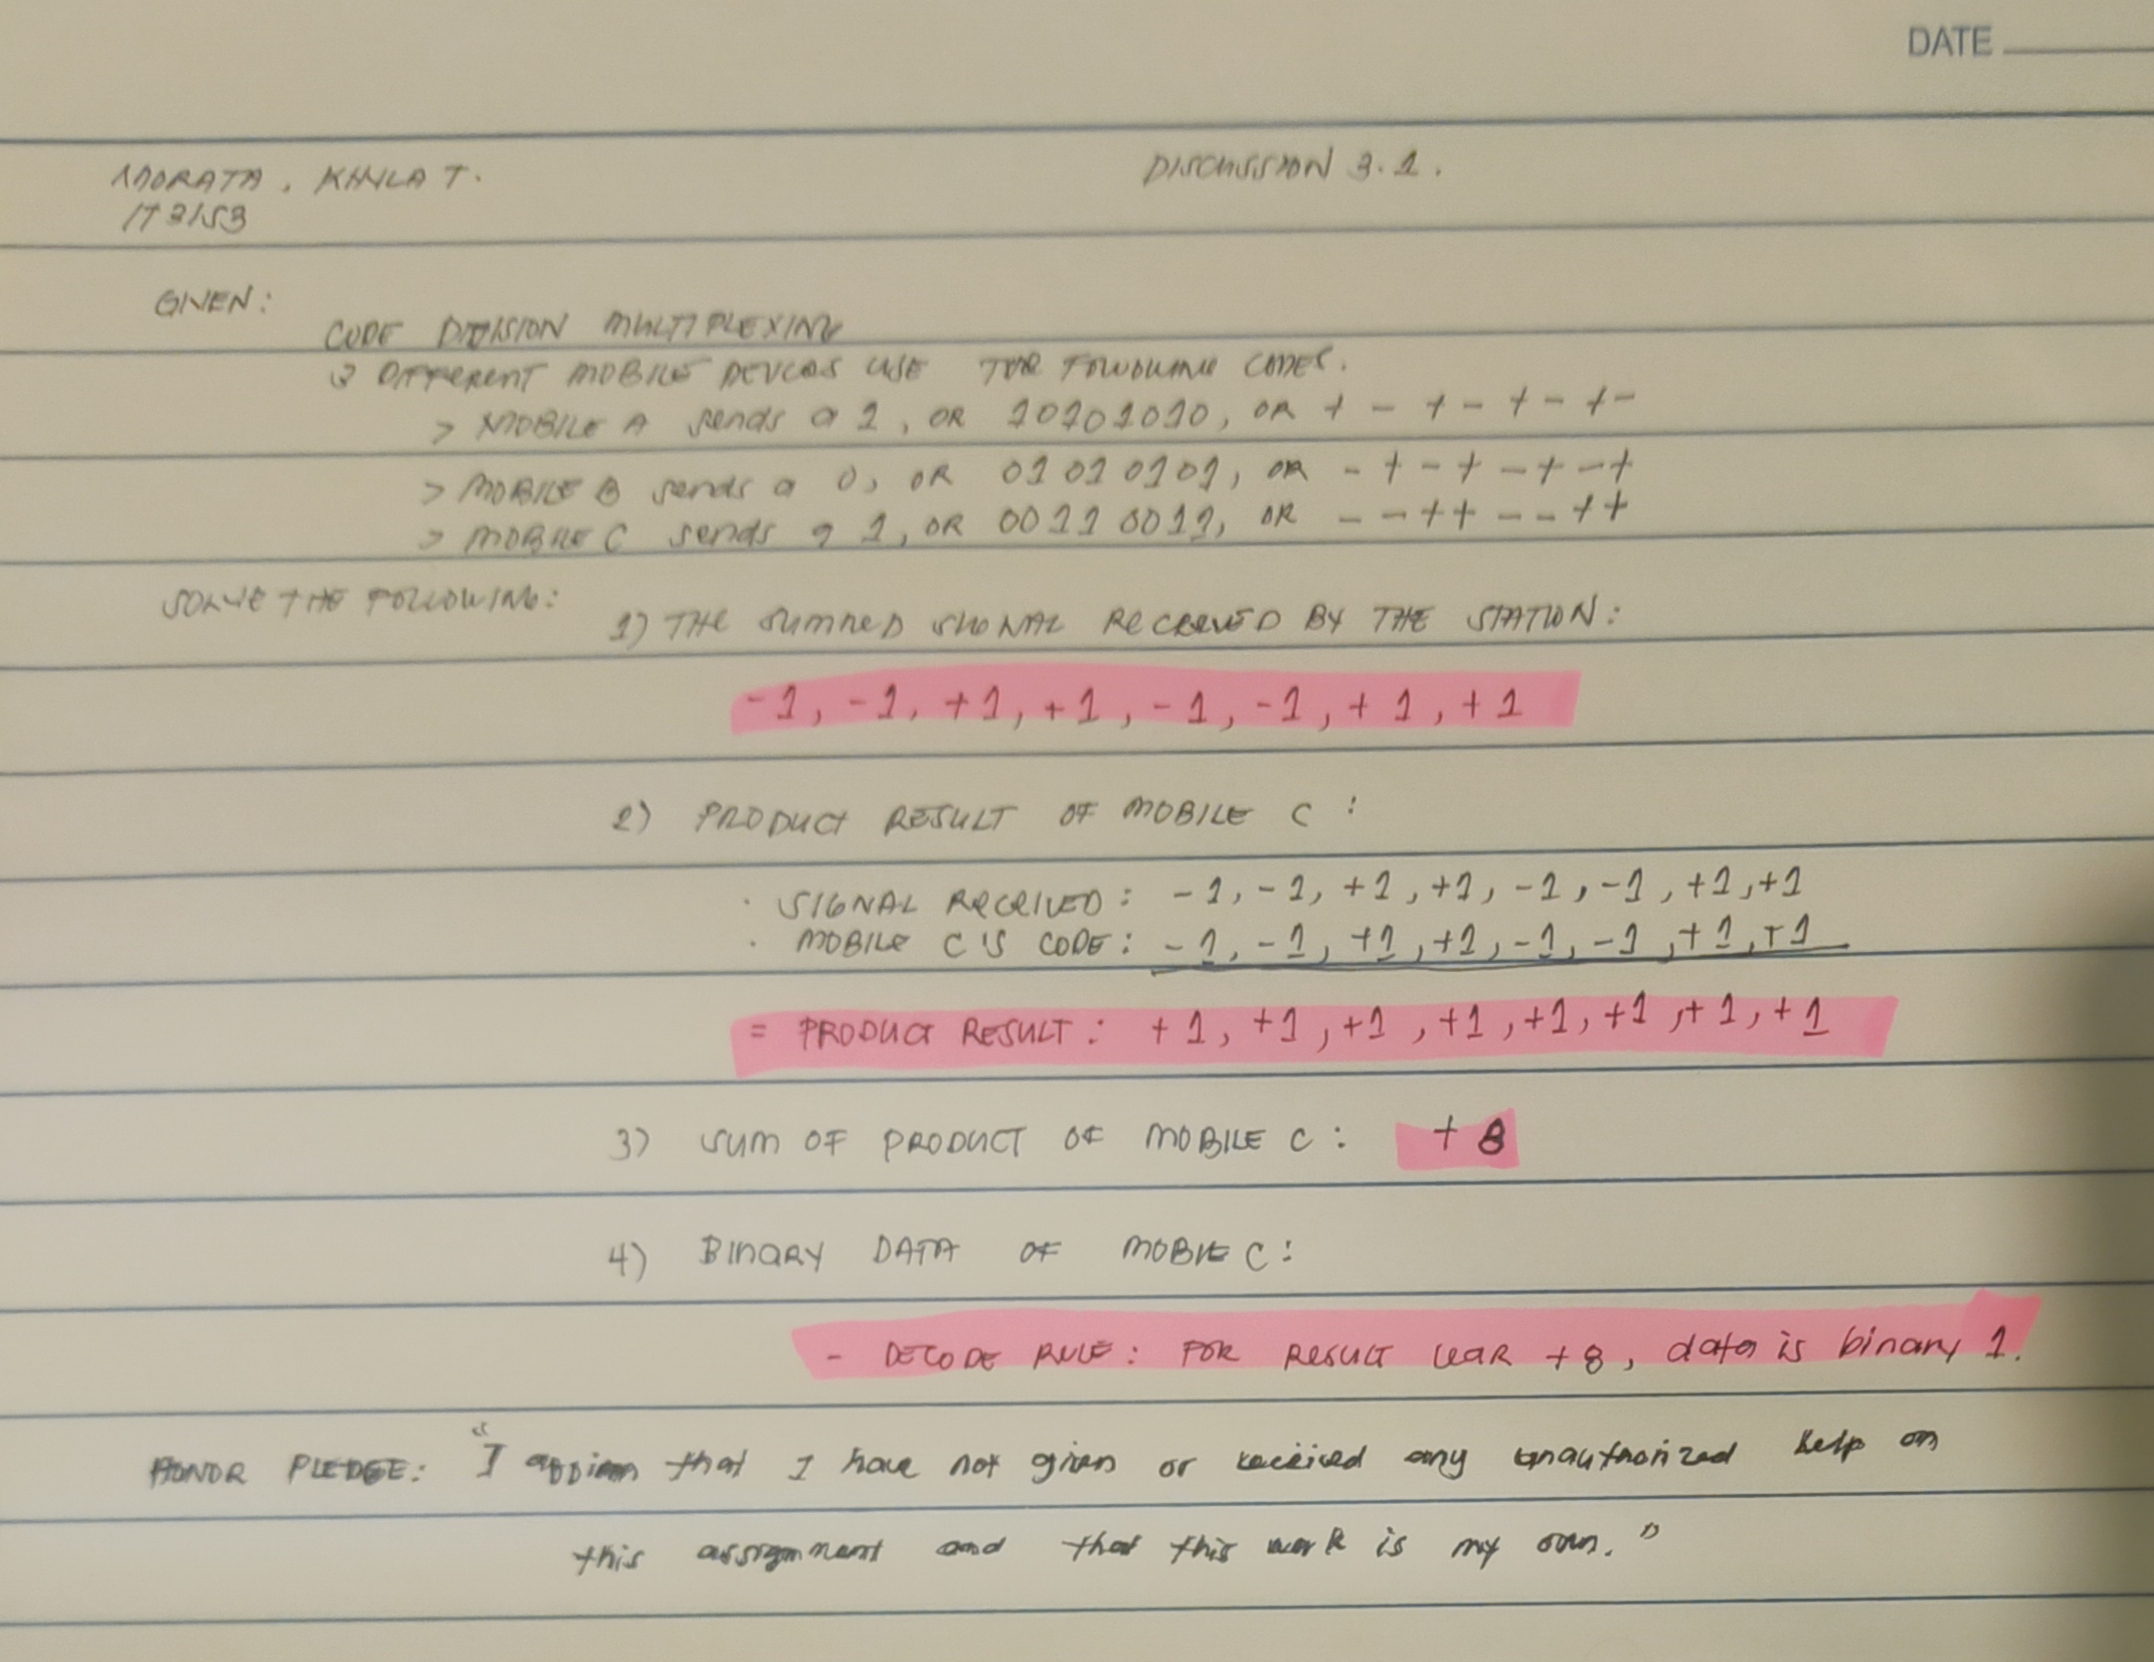 DATE
MORATA, KHYLA T.
DISCUSSION 3.1.
IT3153
GIVEN:
CODE DIVISION MULTIPLEXING
3 DIFFERENT MOBILE DEVICES USE THE FOLLOWING CODES.
> MOBILE A sends a 1, OR 10101010, OR + - + - + - + -
> MOBILE B sends a 0, OR 01010101, OR - + - + - + - +
> MOBILE C sends a 1, OR 00110011, OR - - + + - - + +
SOLVE THE FOLLOWING:
1) THE SUMMED SIGNAL RECEIVED BY THE STATION:
-1, -1, +1, +1, -1, -1, +1, +1
2) PRODUCT RESULT OF MOBILE C:
· SIGNAL RECEIVED: -1, -1, +1, +1, -1, -1, +1, +1
· MOBILE C'S CODE: -1, -1, +1, +1, -1, -1, +1, +1
= PRODUCT RESULT: +1, +1, +1, +1, +1, +1, +1, +1
3) SUM OF PRODUCT OF MOBILE C: +8
4) BINARY DATA OF MOBILE C:
- DECODE RULE: FOR RESULT NEAR +8, data is binary 1.
HONOR PLEDGE: "I affirm that I have not given or received any unauthorized help on
this assignment and that this work is my own."